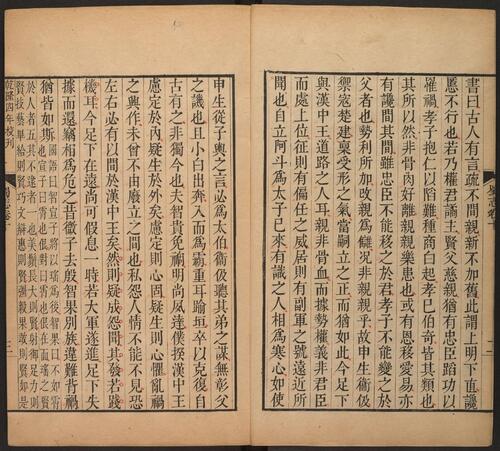 書曰古人有言疏不間親新不加舊此謂上明下直讒
慝不行也若乃權君譎主賢父慈親猶有忠臣蹈功以
罹禍孝子抱仁以陷難種商白起孝己伯奇皆其類也
其所以然非骨肉好離親親樂患也或有恩移愛易亦
有讒間其間雖忠臣不能移之於君孝子不能變之於
父者也勢利所加改親爲讎況非親親乎故申生衞伋
禦寇楚建稟受形之氣當嗣立之正而猶如此今足下
與漢中王道路之人耳親非骨血而據勢權義非君臣
而處上位征則有偏任之威居則有副軍之號遠近所
聞也自立阿斗爲太子已來有識之人相爲寒心如使
申生從子輿之言必爲太伯衞伋聽其弟之謀無彰父
之譏也且小白出奔入而爲霸重耳踰垣卒以克復自
古有之非獨今也夫智貴免禍明尚夙達僕揆漢中王
慮定於內疑生於外矣慮定則心固疑生則心懼亂禍
之興作未曾不由廢立之間也私怨人情不能不見恐
左右必有以間於漢中王矣然則疑成怨聞其發若踐
機耳今足下在遠尚可假息一時若大軍遂進足下失
據而還竊相爲危之昔微子去殷智果別族違難背禍
猶皆如斯
國語曰智宣子將以瑤爲後智果曰不如霄
也宣子曰霄也佷對曰霄也佷在面瑤之賢
於人者五其不逮者一也美鬚長大則賢射御足力則
賢技藝畢給則賢巧文辯惠則賢彊毅果敢則賢如是
乾隆四年校刊
三